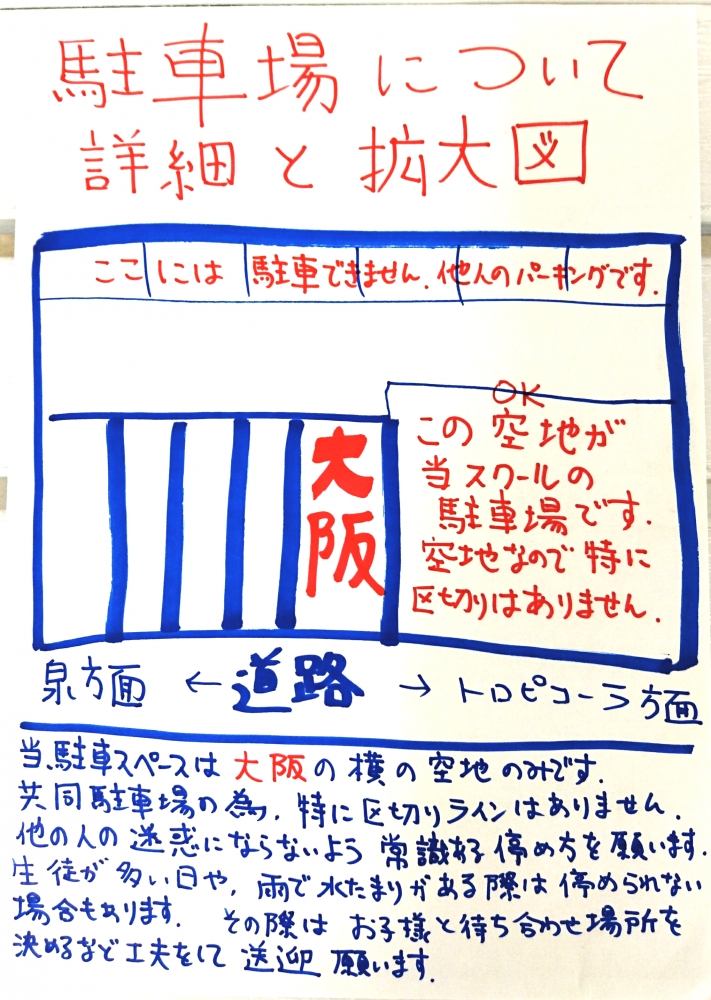 駐車場について
詳細と拡大図
ここには駐車できません。他人のパーキングです。
OK
この空地が
当スクールの
駐車場です。
空地なので特に
区切りはありません。
大阪
泉方面 ← 道路 → トロピコーラ方面
当駐車スペースは大阪の横の空地のみです。
共同駐車場の為、特に区切りラインはありません。
他の人の迷惑にならないよう常識ある停め方を願います。
生徒が多い日や、雨で水たまりがある際は停められない
場合もあります。その際はお子様と待ち合わせ場所を
決めるなど工夫をして送迎願います。